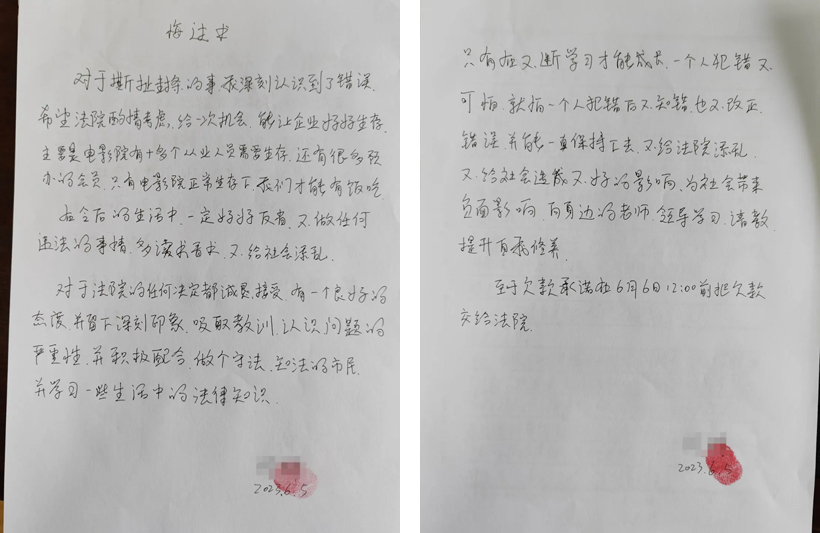 悔过书
对于撕扯封条的事我深刻认识到了错误
希望法院酌情考虑,给一次机会,能让企业好好生存,
主要是电影院有十多个从业人员需要生存,还有很多预
办的会员,只有电影院正常生存下,我们才能有饭吃
在今后的生活中,一定好好反省,不做任何
违法的事情,多读书看书,不给社会添乱,
对于法院的任何决定都诚恳接受,有一个良好的
态度,并留下深刻印象,吸取教训,认识问题的
严重性,并积极配合,做个守法,知法的市民,
并学习一些生活中的法律知识.
2023.6.5
只有在不断学习才能成长,一个人犯错不
可怕,就怕一个人犯错后不知错,也不改正
错误,并能一直保持下去,不给法院添乱,
不给社会造成不好的影响,为社会带来
负面影响,向身边的老师,领导学习,请教
提升自我修养,
至于欠款承诺在6月6日12:00前把欠款
交给法院.
2023.6.5